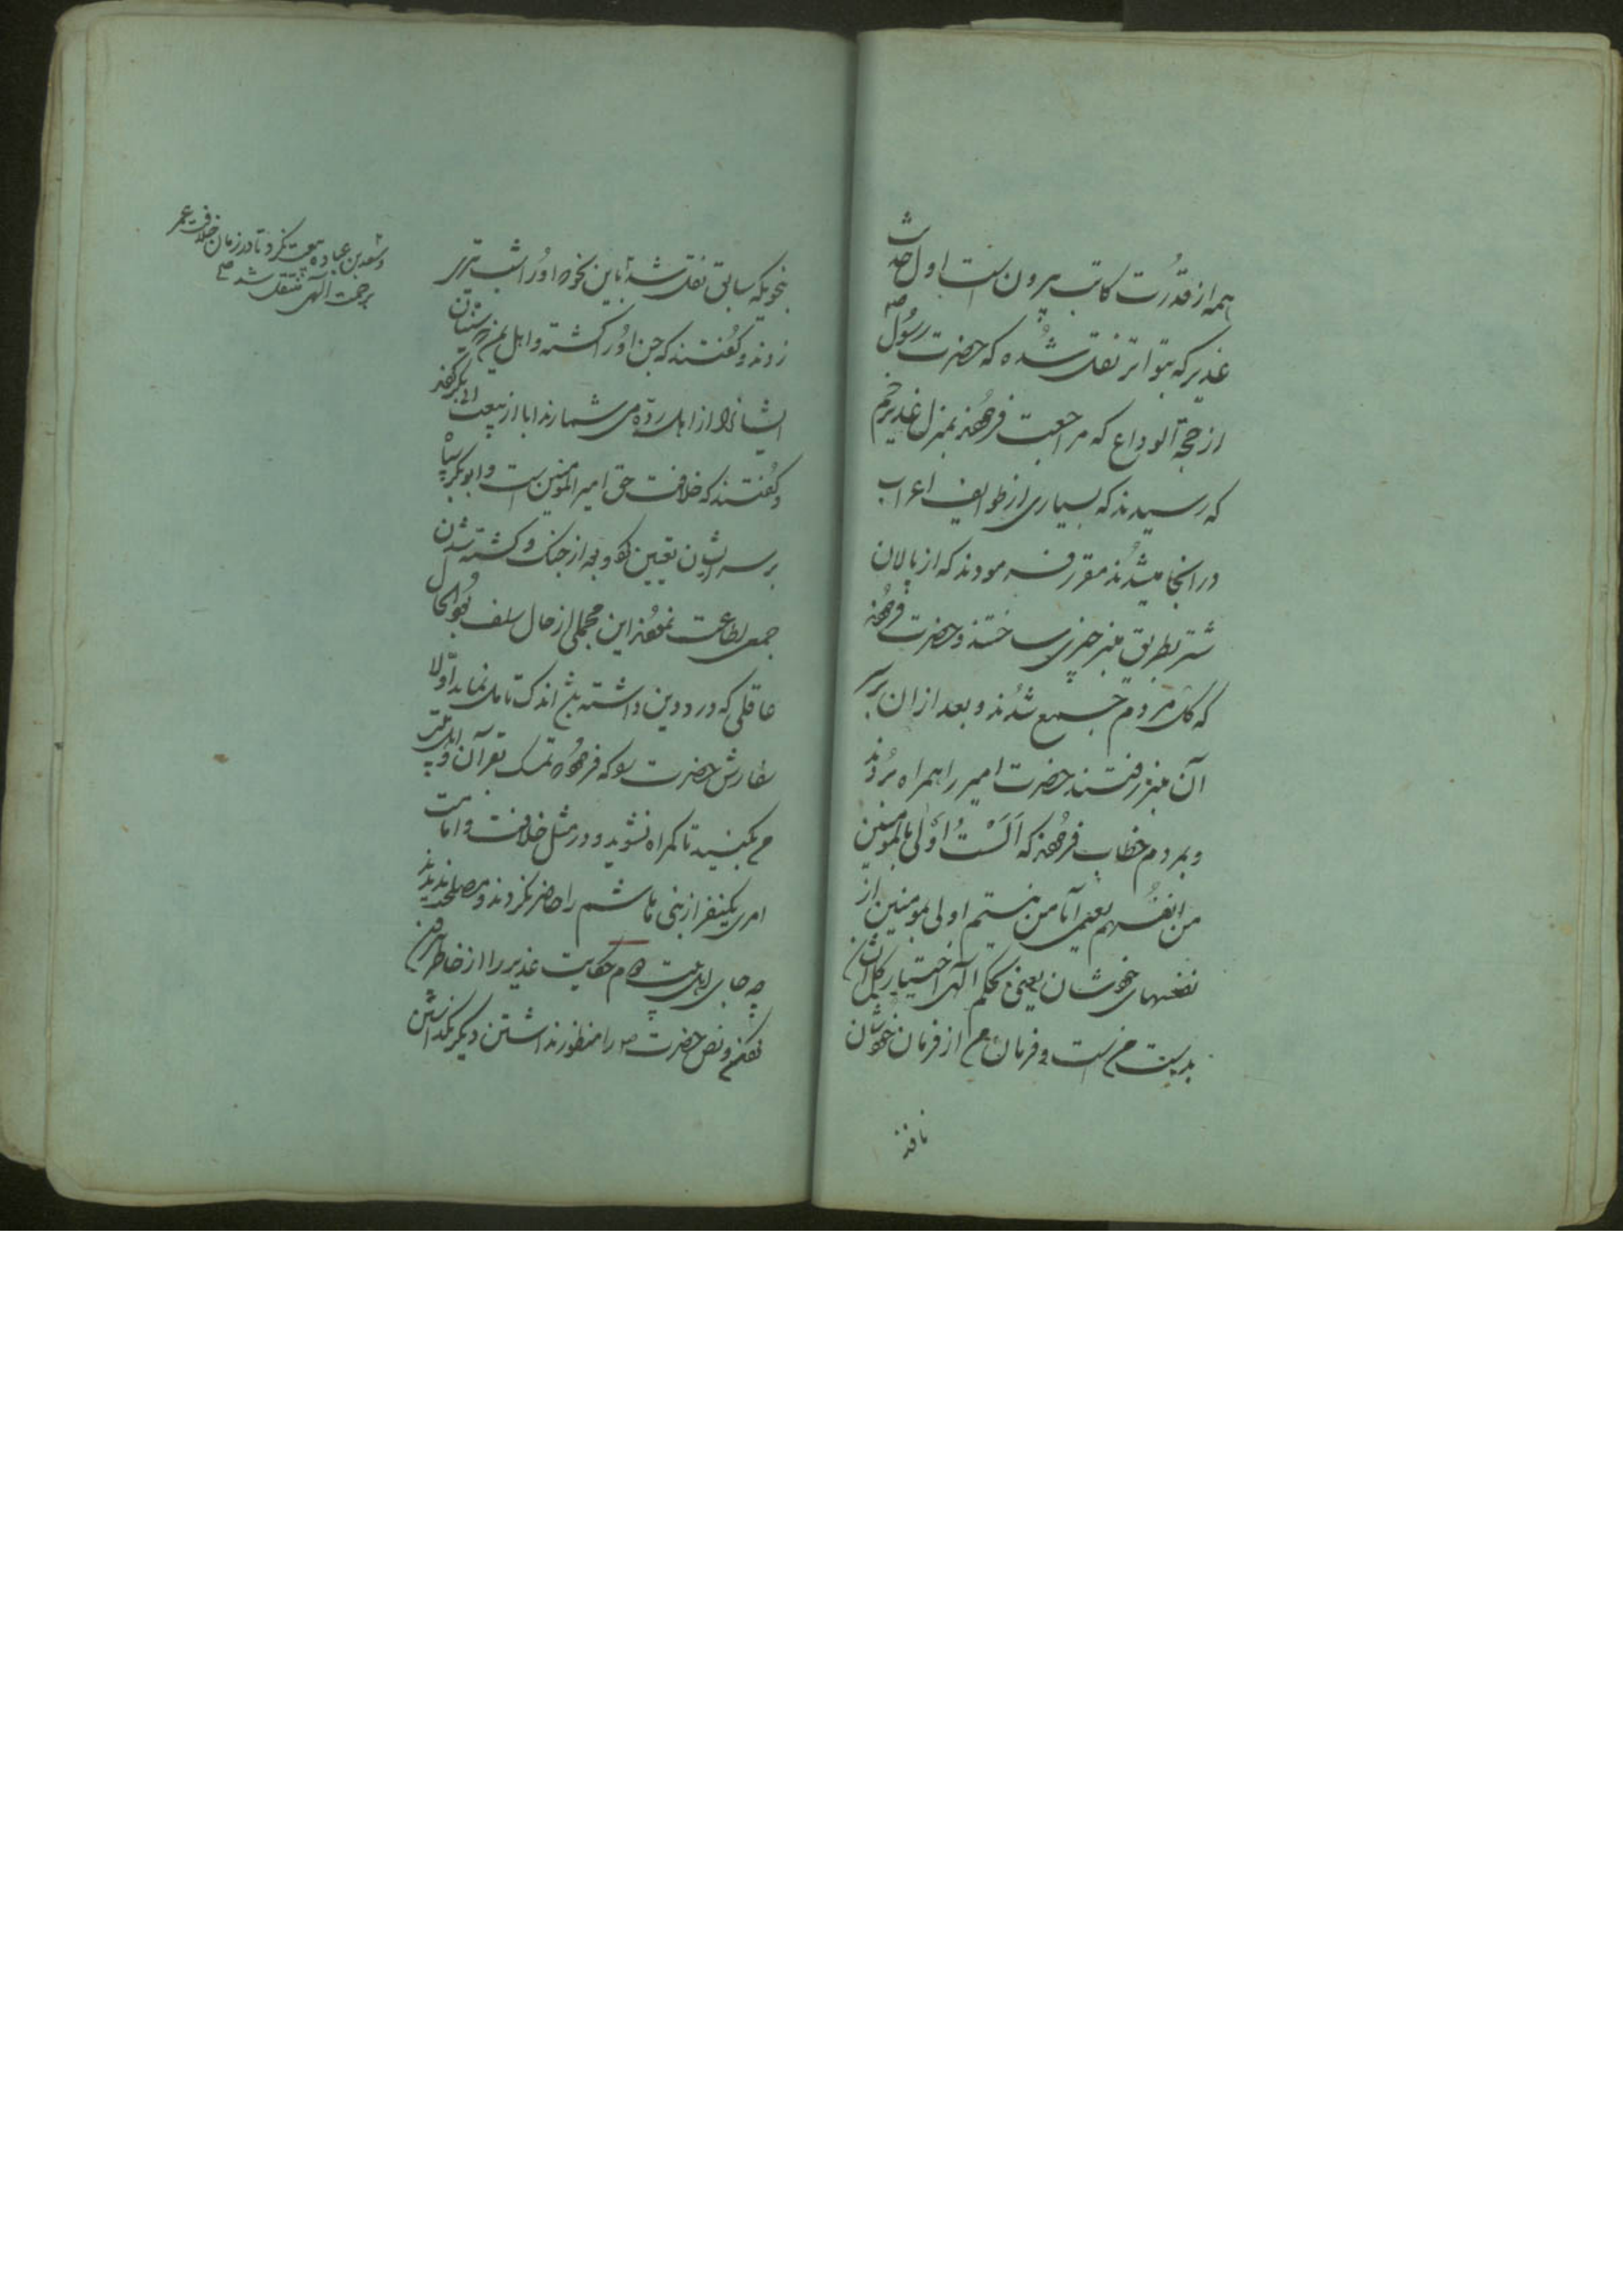 همه از قدرت کاتب بیرون است اول حدیث
غدیر که بتواتر نقل شده که حضرت رسول ص
از حجة الوداع که مراجعت فرموده بمنزل غدیر خم
که رسیدند که بسیاری از طوایف اعراب
در انجا میشدند مقرر فرمودند که از پالان
شتر بطریق منبر چیزی ساختند و حضرت فرموده
که کل مردم جمیع شدند و بعد از ان بر سر
آن منبر رفتند حضرت امیر را همراه بردند
و بمردم خطاب فرمودند که اَلَسْتُ اَوْلی بالمؤمنین
من انفسهم یعنی آیا من نیستم اولی بمومنین از
نفسهای خودشان یعنی بحکم الهی اختیار کل ایشان
بدست من است و فرمان من از فرمان خودشان
نافذ
بنحویکه سابق نقل شد باین نحو که او را شب تیری
زدند و گفتند که جن او را کشته و اهل یمن که سنیان
ایشانرا از اهل ردّه می شمارند ابا از بیعت ابی بکر کردند
و گفتند که خلافت حق امیر المومنین است و ابوبکر سپاه
بر سر ایشان تعیین کرد و بعد از جنگ و کشته شدن
جمعی اطاعت نمودند این مجملی از حال سلف بود الحال
عاقلی که درد دین داشته باشد اندک تامل نماید اوّلا
سفارش حضرت رسول که فرموده تمسک بقرآن و اهل بیت
من بکنید تا کمراه نشوید و در مثل خلافت و امامت
امری یکنفر از بنی هاشم را حاضر نکردند و مصلحت ندیدند
چه جای اهل بیت دوم حکایت غدیر را از خاطر
و نص حضرت ص را منظور نداشتن دیگر
و سعد بن عباده بیعت نکرد تا در زمان خلافت عمر
برحمت الهی منتقل شد